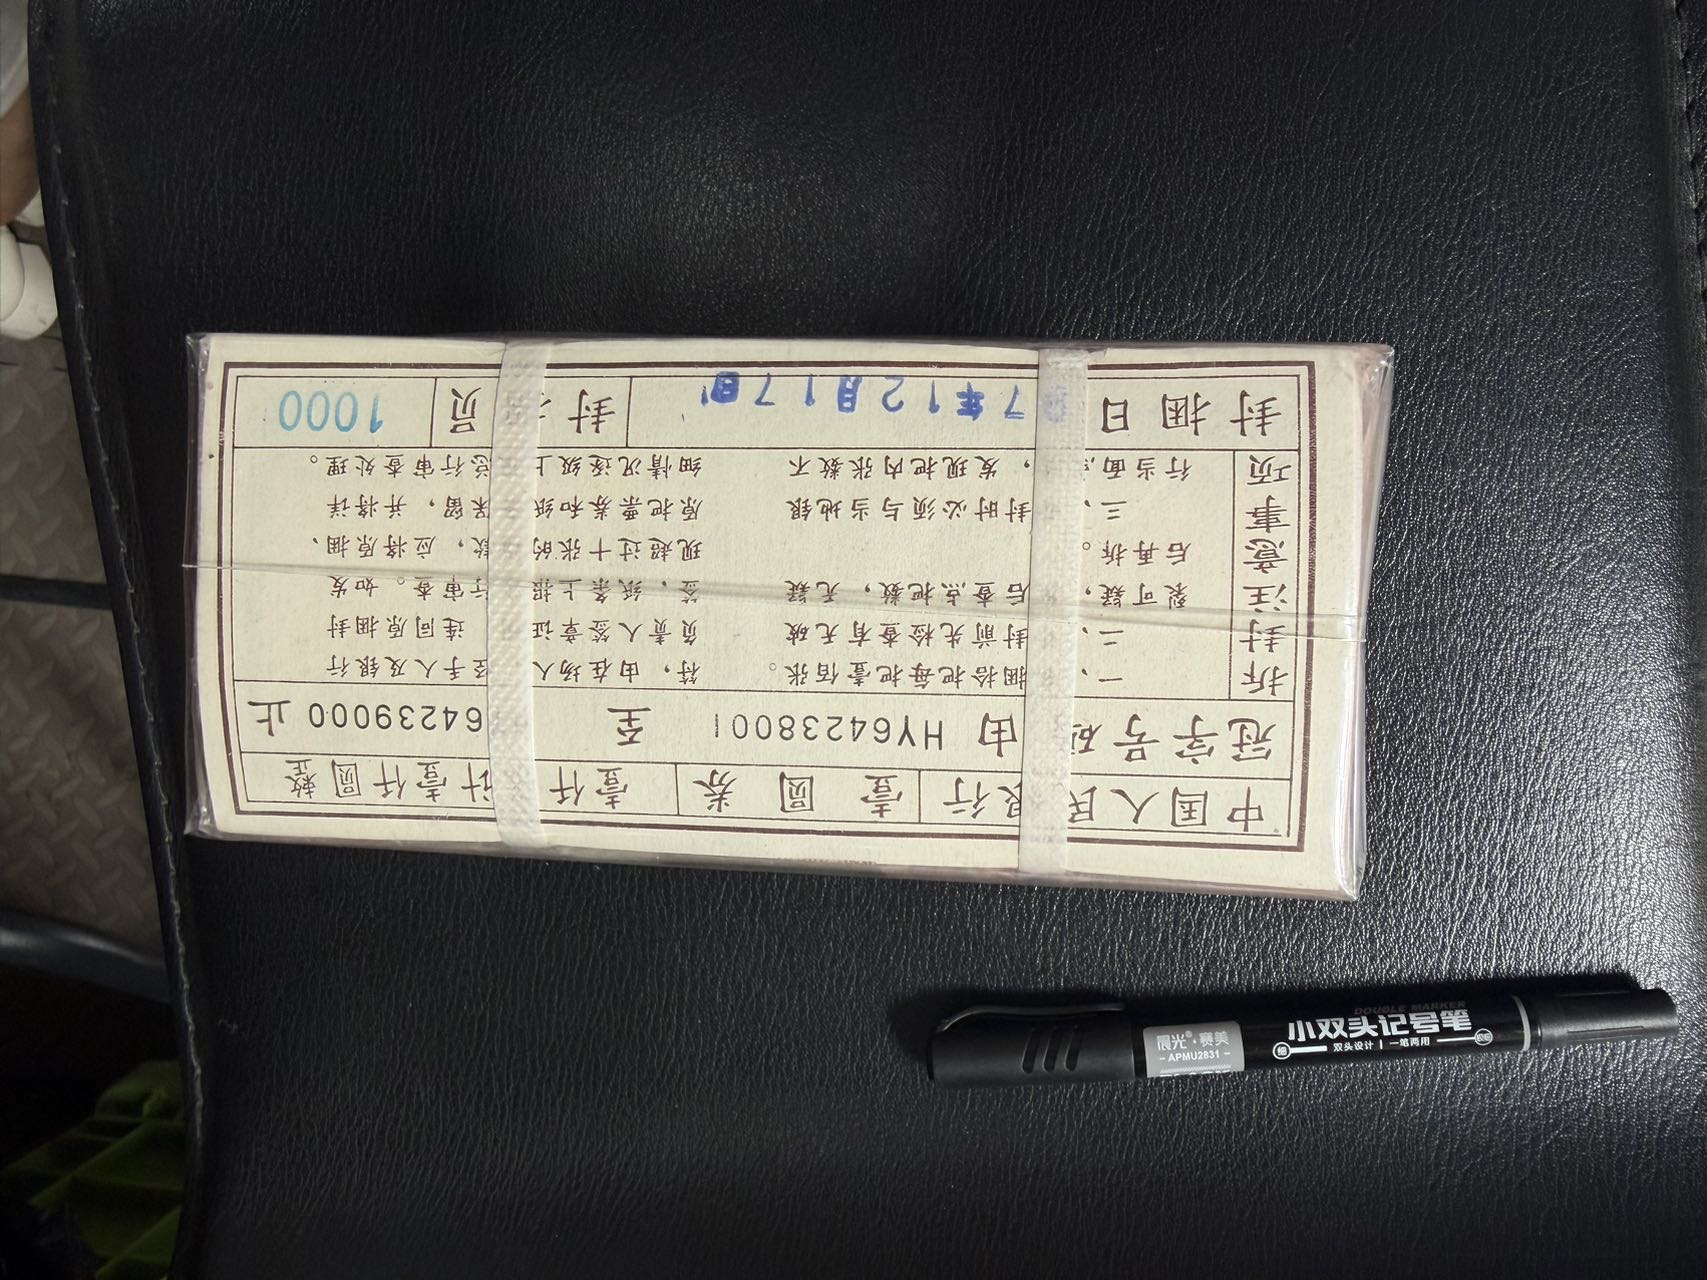 中国人民银行 壹圆券 壹仟 计壹仟圆整
冠字号码 由 HY64238001 至 64239000 止
拆封注意事项
一、 捆拾把每把壹佰张。
二、 封前先检查有无破
裂可疑, 后查点把数,无疑
后再拆。
三、 封时必须与当地银
行当面 ,发现把内张数不
符,由在场人 经手人及银行
负责人签章证 连同原捆封
签,纸条上报 行审查。如发
现超过十张的 款,应将原捆、
原把票券和纸 保留,并将详
细情况逐级上 总行审查处理。
封捆日 7年12月17日 封 员 1000
DOUBLE MARKER
晨光®·赛美
- APMU2831 -
小双头记号笔
细 双头设计 | 一笔两用